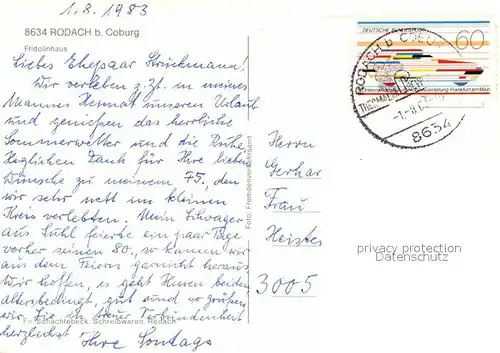 1.8.1983
8634 RODACH b. Coburg
Fridolinhaus
Liebes Ehepaar Strickmann!
Wir verleben z.Zt. in meines
Mannes Heimat unseren Urlaub
und genießen das herrliche
Sommerwetter und die Ruhe.
Herzlichen Dank für Ihre lieben
Wünsche zu meinem 75., den
wir sehr nett im kleinen
Kreis verlebten. Mein Schwager
aus Suhl feierte ein paar Tage
vorher seinen 80., so kamen wir
aus dem Feiern garnicht heraus.
Wir hoffen, es geht Ihnen beiden
altersbedingt, gut und so grüßen
wir Sie in treuer Verbundenheit
F. Schachtebeck, Schreibwaren, Rodach
herzlichst Ihre Sontags
Foto: Fremdenverkehrsamt
DEUTSCHE BUNDESPOST
60
Internationale Automobil-Ausstellung Frankfurt am Main
RODACH b COBURG
THERMAL
-1.-8.83
8634
Herrn
Gerhar
Frau
Heister
3005
privacy protection
Datenschutz